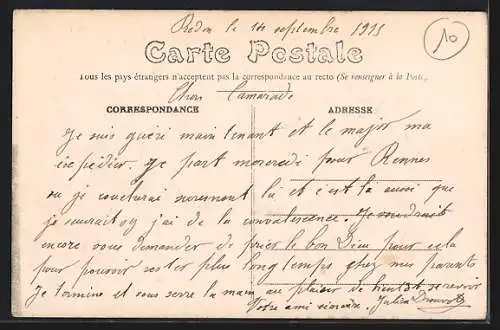 Redon le 14 septembre 1915
10
Carte Postale
Tous les pays étrangers n'acceptent pas la correspondance au recto (Se renseigner à la Poste)
Cher Camarade
CORRESPONDANCE
ADRESSE
Je suis guéri maintenant et le major ma
expédier. Je part mercredi pour Rennes
ou je coucherai surement là et c'est là aussi que
je saurait si j'ai de la convalescence. Je voudrait
encore vous demander de prier le bon Dieu pour cela
pour pouvoir rester plus longtemps chez mes parents
Je termine et vous serre la main au plaisir de bientôt se revoir
Votre ami sincère. Julien